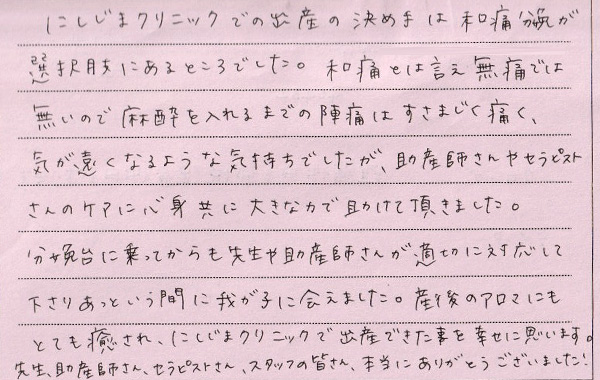 にしじまクリニックでの出産の決め手は和痛分娩が
選択肢にあるところでした。和痛とは言え無痛では
無いので麻酔を入れるまでの陣痛はすさまじく痛く、
気が遠くなるような気持ちでしたが、助産師さんやセラピスト
さんのケアに心身共に大きな力で助けて頂きました。
分娩台に乗ってからも先生や助産師さんが適切に対応して
下さりあっという間に我が子に会えました。産後のアロマにも
とても癒され、にしじまクリニックで出産できた事を幸せに思います。
先生、助産師さん、セラピストさん、スタッフの皆さん、本当にありがとうございました!